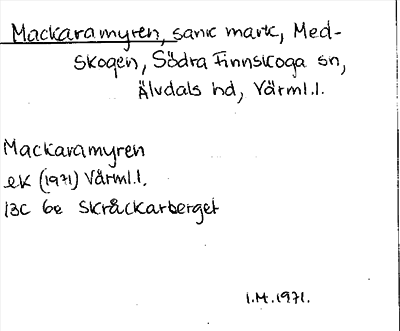 Mackaramyren, sank mark, Med-
skogen, Södra Finnskoga sn,
Älvdals hd, Värml.l.
Mackaramyren
ek (1971) Värml.l.
13C 6e Skråckarberget
I.M.1971.